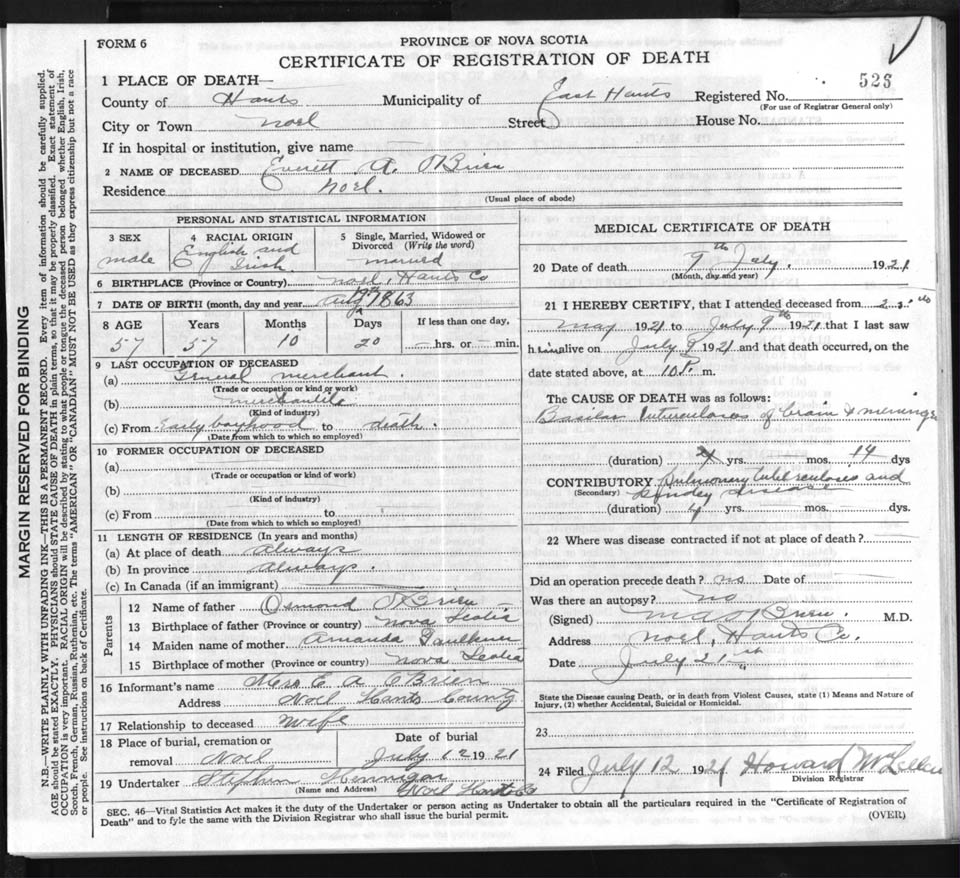 FORM 6
PROVINCE OF NOVA SCOTIA
CERTIFICATE OF REGISTRATION OF DEATH
1 PLACE OF DEATH—
County of Hants Municipality of East Hants Registered No. 523
(For use of Registrar General only)
City or Town Noel Street House No.
If in hospital or institution, give name
2 NAME OF DECEASED Everett A. O'Brien
Residence Noel.
(Usual place of abode)
PERSONAL AND STATISTICAL INFORMATION
3 SEX
male
4 RACIAL ORIGIN
English and
Irish.
5 Single, Married, Widowed or
Divorced (Write the word)
married
6 BIRTHPLACE (Province or Country) Noel, Hants Co
7 DATE OF BIRTH (month, day and year) Aug 19th 1863
8 AGE Years Months Days If less than one day,
57 57 10 20 hrs. or min.
9 LAST OCCUPATION OF DECEASED
(a) General merchant.
(Trade or occupation or kind or work)
(b) mercantile
(Kind of industry)
(c) From Early boyhood to death.
(Date from which to which so employed)
10 FORMER OCCUPATION OF DECEASED
(a)
(Trade or occupation or kind of work)
(b)
(Kind of industry)
(c) From to
(Date from which to which so employed)
11 LENGTH OF RESIDENCE (In years and months)
(a) At place of death always
(b) In province always.
(c) In Canada (if an immigrant)
Parents
12 Name of father Osmond O'Brien
13 Birthplace of father (Province or country) Nova Scotia
14 Maiden name of mother Amanda Faulkner
15 Birthplace of mother (Province or country) Nova Scotia
16 Informant's name Mrs E A O'Brien
Address Noel Hants County
17 Relationship to deceased Wife
18 Place of burial, cremation or
removal Noel
Date of burial
July 12 1921
19 Undertaker Stephen
(Name and Address) Noel Hants Co
MEDICAL CERTIFICATE OF DEATH
20 Date of death 9th July. 1921
(Month, day and year)
21 I HEREBY CERTIFY, that I attended deceased from
May 1921 to July 9th 1921 that I last saw
him alive on July 9 1921 and that death occurred, on the
date stated above, at 10 P. m.
The CAUSE OF DEATH was as follows:
Basilar tuberculosis of brain & meninges
(duration) yrs. mos. 14 dys
CONTRIBUTORY Pulmonary tuberculosis and
(Secondary) Kidney disease
(duration) 4 yrs. mos. dys.
22 Where was disease contracted if not at place of death?
Did an operation precede death? no Date of
Was there an autopsy? no
(Signed) M A O'Brien. M.D.
Address Noel, Hants Co.
Date July 21st
State the Disease causing Death, or in death from Violent Causes, state (1) Means and Nature of
Injury, (2) whether Accidental, Suicidal or Homicidal.
23
24 Filed July 12 1921 Howard McLellan
Division Registrar
SEC. 46—Vital Statistics Act makes it the duty of the Undertaker or person acting as Undertaker to obtain all the particulars required in the "Certificate of Registration of
Death" and to fyle the same with the Division Registrar who shall issue the burial permit.
(OVER)
MARGIN RESERVED FOR BINDING
N.B.—WRITE PLAINLY WITH UNFADING INK—THIS IS A PERMANENT RECORD. Every item of information should be carefully supplied.
AGE should be stated EXACTLY. PHYSICIANS should STATE CAUSE OF DEATH in plain terms, so that it may be properly classified. Exact statement of
OCCUPATION is very important. RACIAL ORIGIN will be described by stating to what people or tongue the deceased person belonged whether English, Irish,
Scotch, French, German, Russian, Ruthenian, etc. The terms "AMERICAN" OR "CANADIAN" MUST NOT BE USED as they express citizenship but not a race
or people. See instructions on back of Certificate.